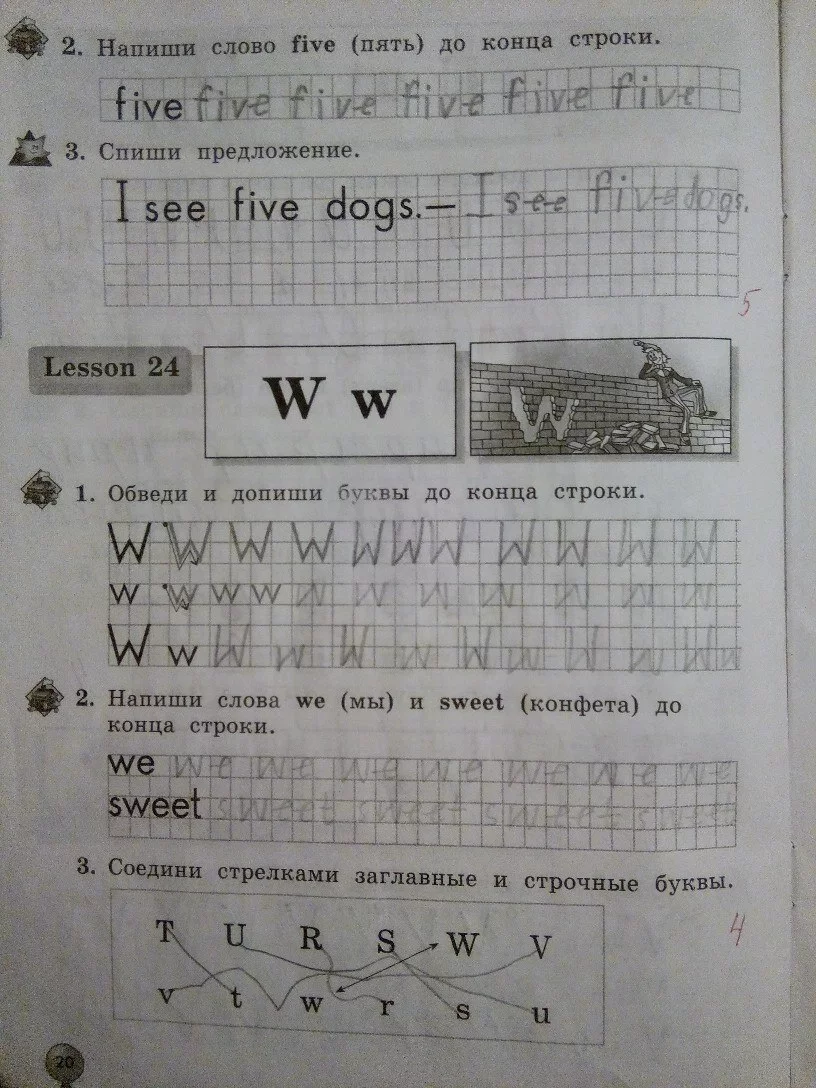 2. Напиши слово five (пять) до конца строки.
five five five five five five
3. Спиши предложение.
I see five dogs.— I see five dogs.
5
Lesson 24
W w
W
1. Обведи и допиши буквы до конца строки.
W W W W W W W W W W W
w w w w w w w w w w w
W w W w W w W w W w W w
2. Напиши слова we (мы) и sweet (конфета) до
конца строки.
we we we we we we we we
sweet sweet sweet sweet sweet
3. Соедини стрелками заглавные и строчные буквы.
4
T U R S W V
v t w r s u
20